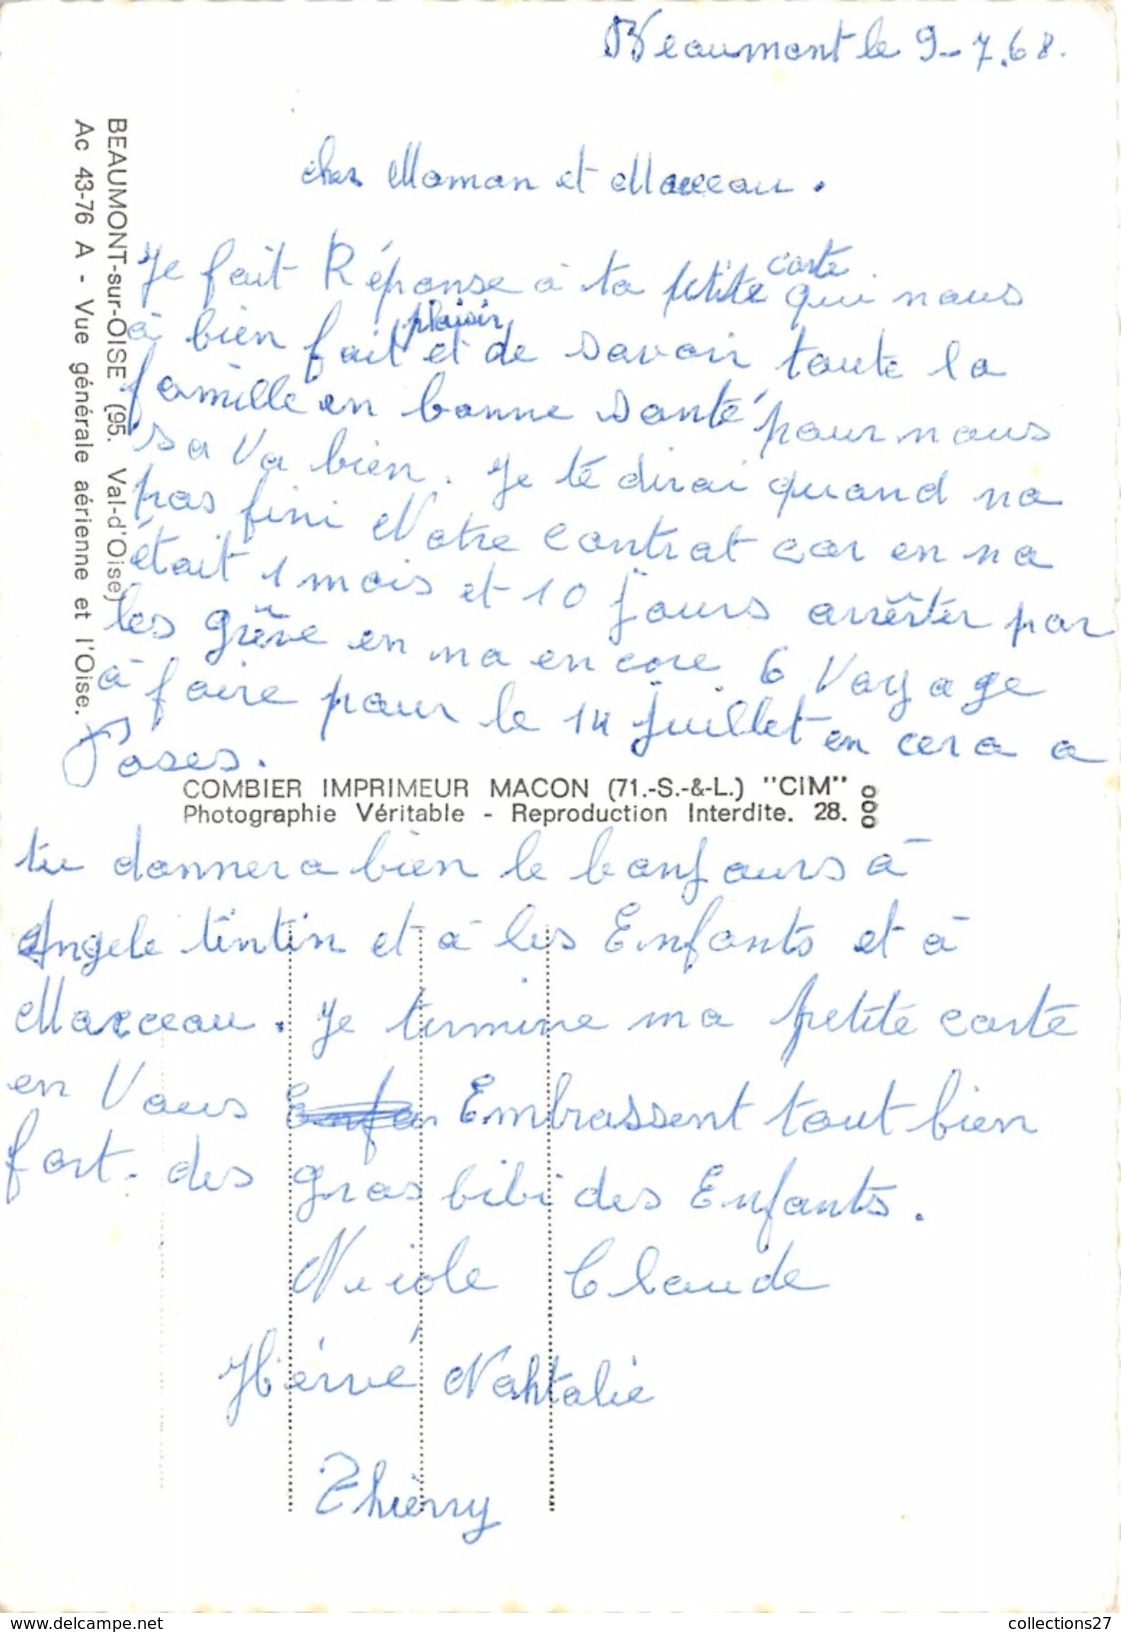 Beaumont le 9-7.68.
cher Maman et Marceau.
Je fait Réponse à ta petite carte qui nous
à bien fait plaisir et de savoir toute la
famille en bonne santé pour nous
sa Va bien. Je té dirai quand na
pas fini Notre contrat car en na
était 1 mois et 10 jours arrêter par
les grève en na encore 6 Voyage
à faire pour le 14 juillet en cera a
Poses.
tu donnera bien le bonjours à
Angele tintin et à les Enfants et à
Marceau. Je termine ma petite carte
en Vous Embrassent tout bien
fort. des gros bibi des Enfants.
Nicole Claude
Hérvé Nahtalie
Thièrry
BEAUMONT-sur-OISE (95. Val-d'Oise)
Ac 43-76 A - Vue générale aérienne et l'Oise.
COMBIER IMPRIMEUR MACON (71.-S.-&-L.) "CIM"
Photographie Véritable - Reproduction Interdite. 28.
https://www.delcampe.net
collections27